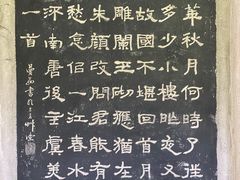 華秋月何時了往
多少小樓昨夜又
故國不堪回首月
雕闌玉砌應猶在
朱顏改問君能有
愁恰佀一江春水
流南唐後主虞美
一首